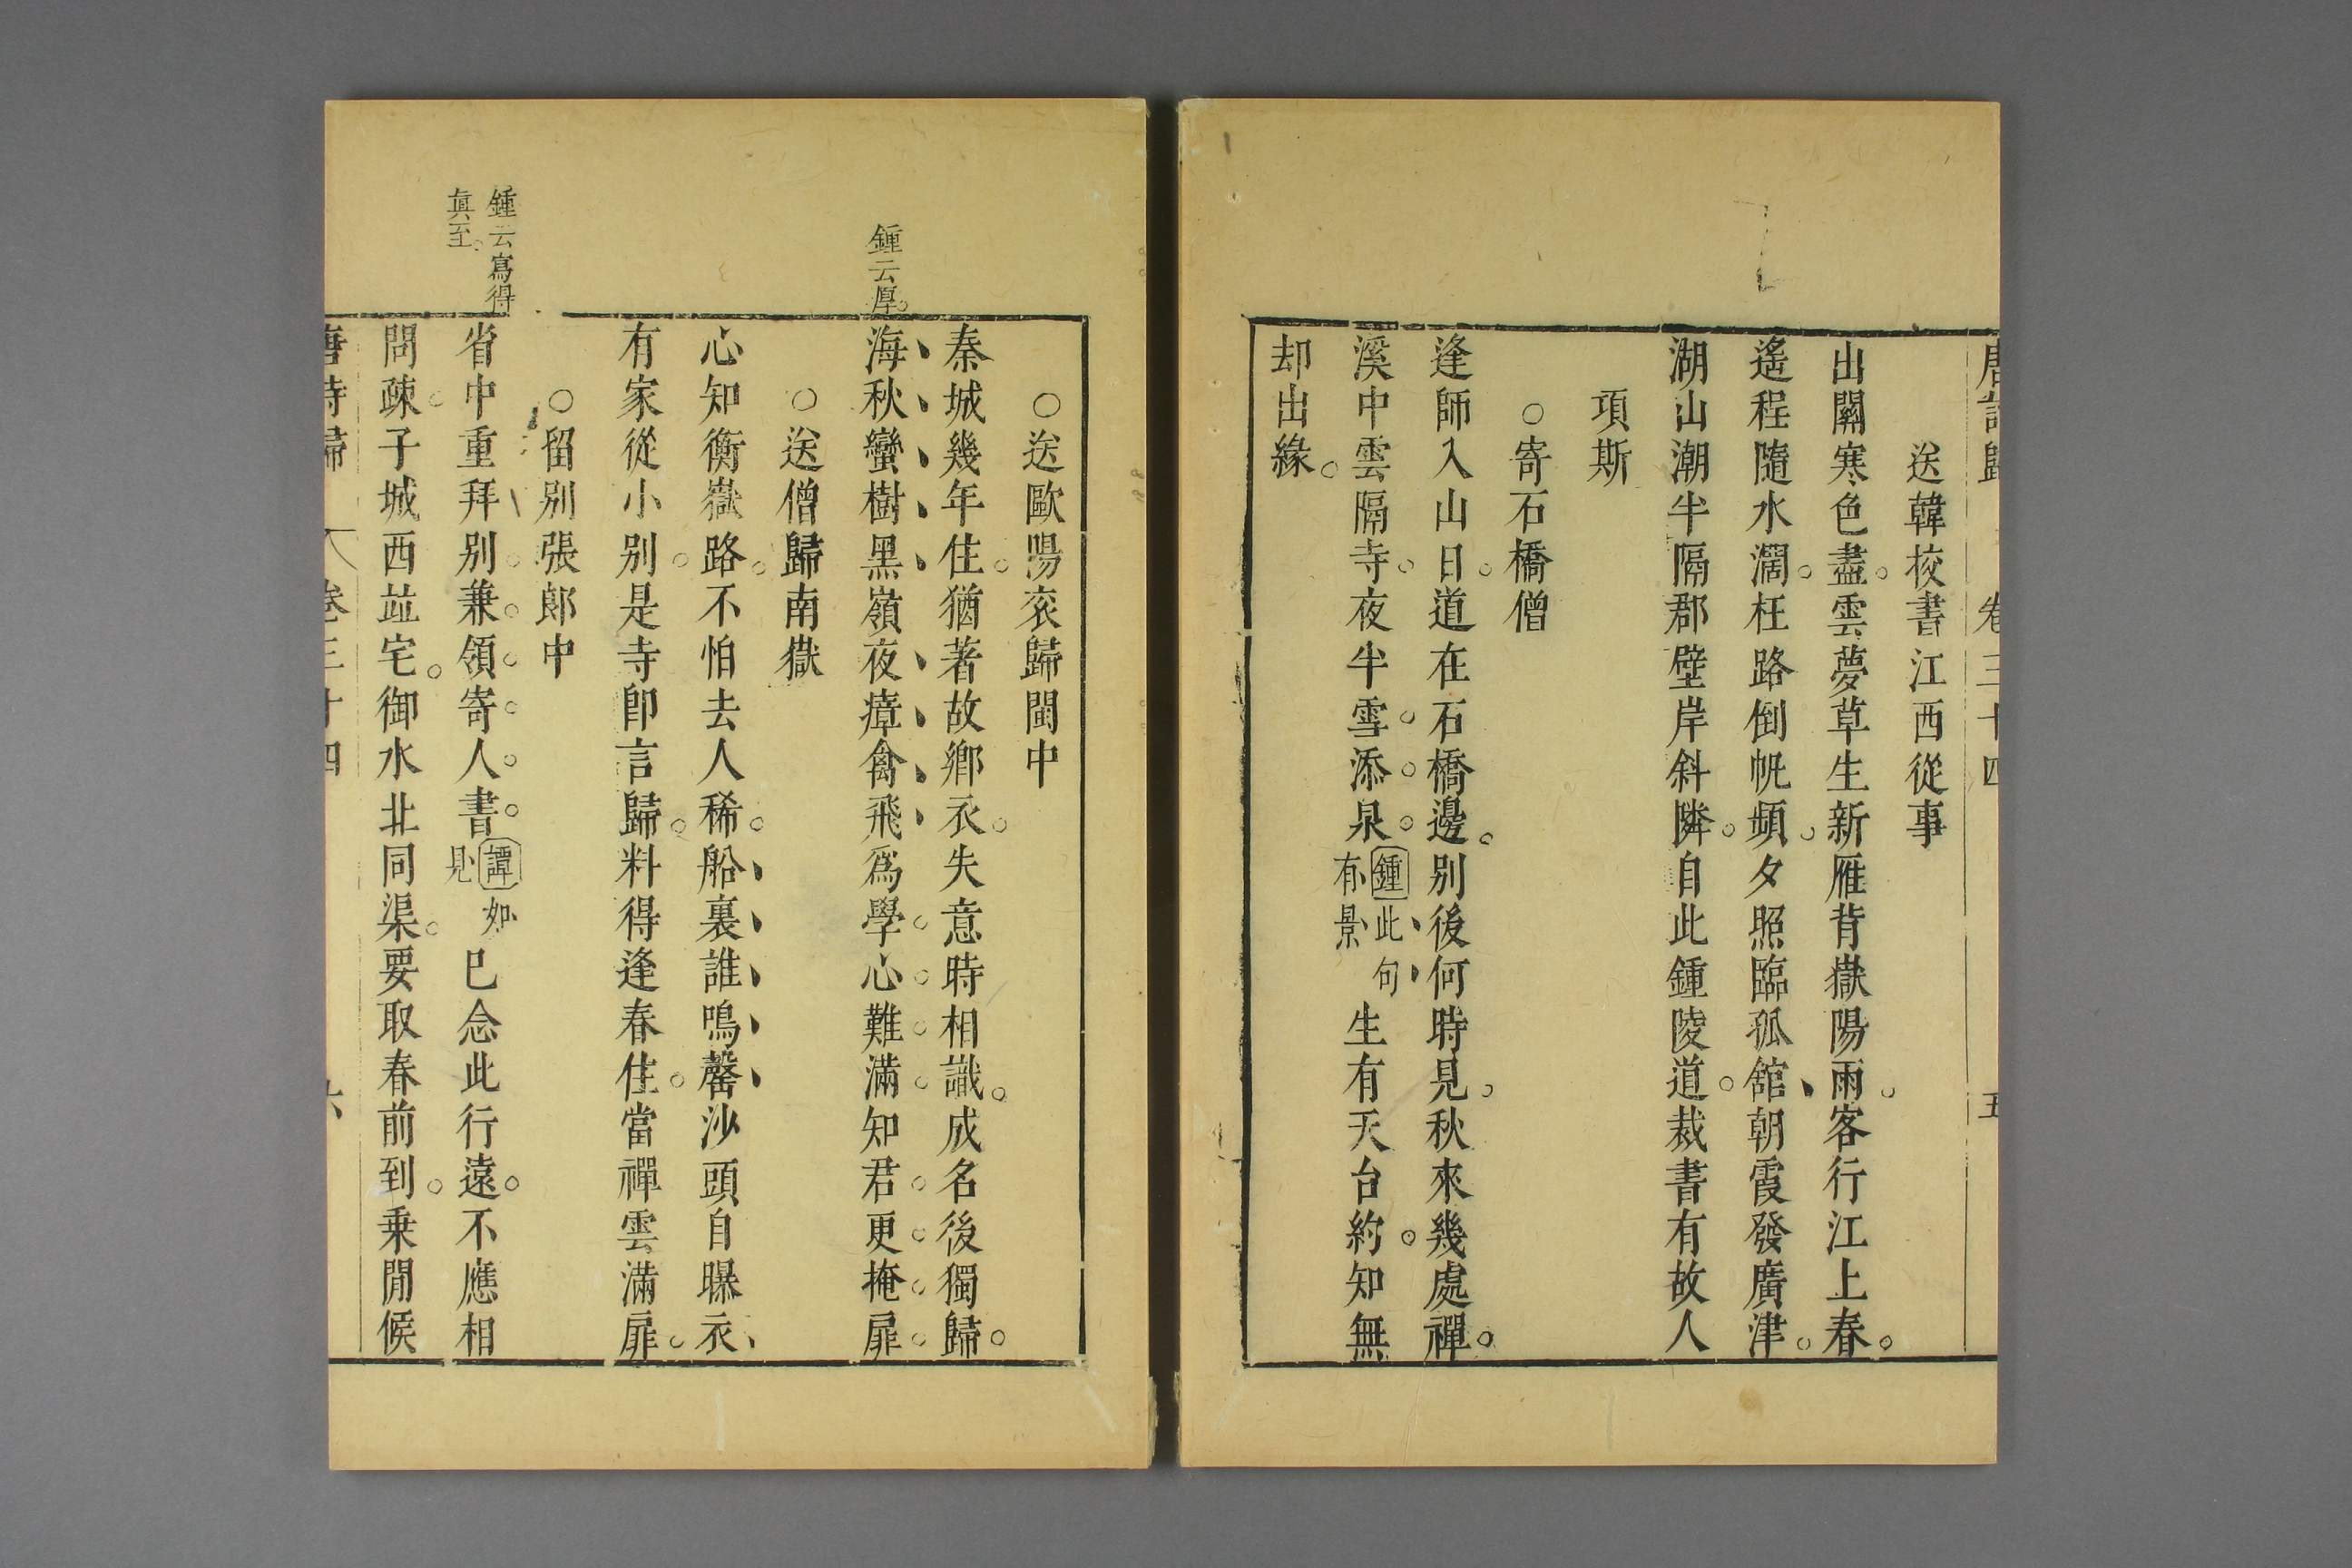 唐詩歸 卷三十四 五
送韓挍書江西從事
出關寒色盡。雲夢草生新雁背嶽陽雨。客行江上春。
遙程隨水濶。枉路倒帆頻。夕照臨孤舘、朝霞發廣津。
湖山潮半隔郡壁岸斜隣。自此鍾陵道。裁書有故人
項斯
○寄石橋僧
逢師入山日。道在石橋邊。別後何時見。秋來幾處禪。
溪中雲隔寺。夜半雪添泉。鍾此句有景生有天台約。知無
却出緣。
○送歐陽衮歸閩中
秦城幾年住。猶著故鄉衣。失意時相識。成名後獨歸。
鍾云厚。
海秋蠻樹黑嶺夜瘴禽飛爲學心難滿知君更掩扉
○送僧歸南嶽
心知衡嶽路。不怕去人稀。船裏誰鳴磬沙頭自曝衣、
有家從小別。是寺卽言歸。料得逢春住。當禪雲滿扉。
○留別張郎中
鍾云寫得
真至。
省中重拜別。兼領寄人書。譚如見已念此行遠。不應相
問疎。子城西竝宅。御水北同渠。要取春前到。乗閒候
唐詩歸 卷三十四 六